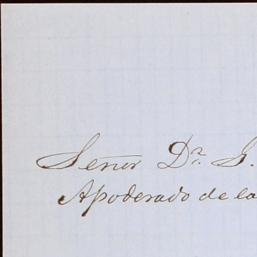 Señor Dn. G.
Apoderado de la